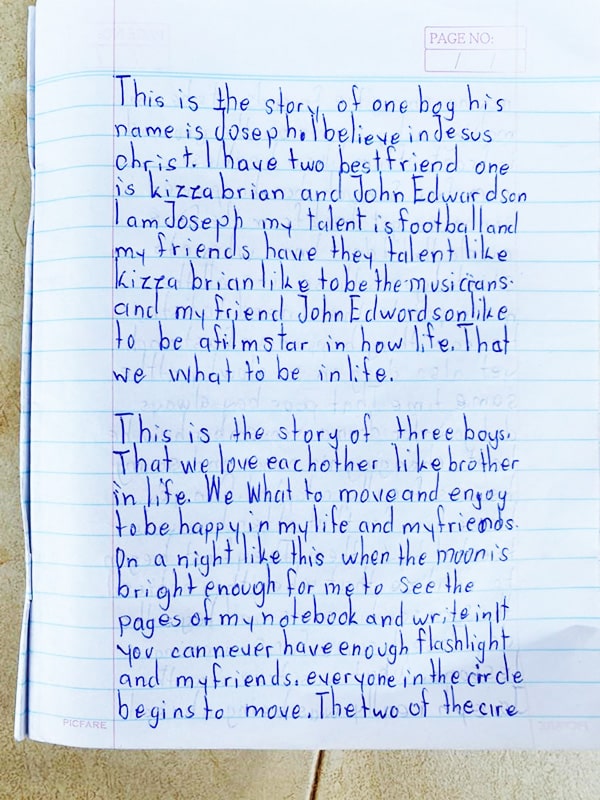 PAGE NO:
/ /
This is the story of one boy his
name is Joseph. I believe in Jesus
christ. I have two best friend one
is kizza brian and John Edwardson
I am Joseph my talent is football and
my friends have they talent like
kizza brian like to be the musicians.
and my friend John Edwordson like
to be a film star in how life. That
we what to be in life.
This is the story of three boys.
That we love eachother like brother
in life. We What to move and enjoy
to be happy in my life and my friends.
On a night like this when the moon is
bright enough for me to see the
pages of my notebook and write in It
you can never have enough flashlight
and my friends. everyone in the circle
begins to move. The two of the circe
PICFARE